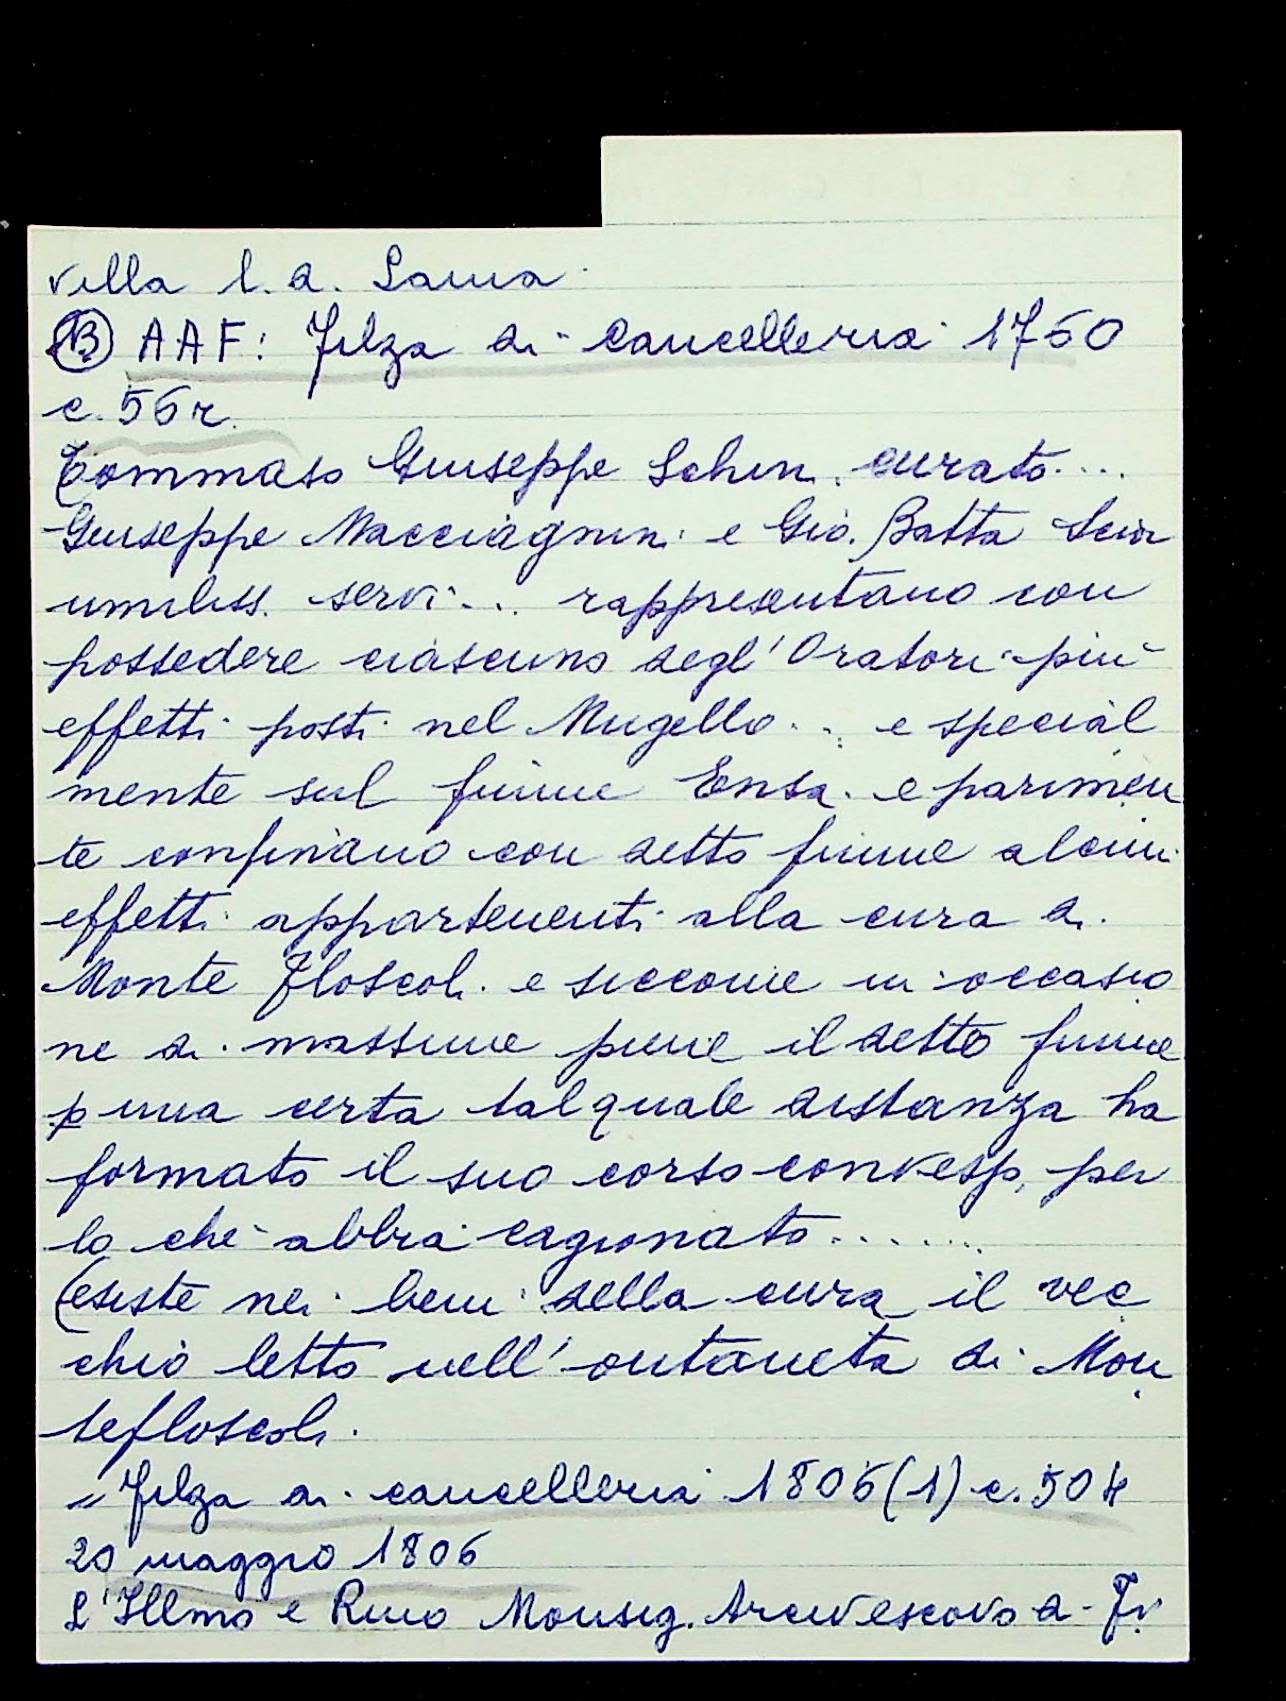 villa l. d. Sauva
(B) AAF: Filza di cancelleria 1760
c. 56r.
Tommaso Giuseppe Schin. curato....
Giuseppe Macciagnini e Gio. Batta
umiliss. servi... rappresentano con
possedere ciascuno degl'Oratori più
effetti posti nel Mugello... e special
mente sul fiume Ensa. e parimen
te confinano con detto fiume alcuni
effetti appartenenti alla cura di
Monte Floscoli e siccome in occasio
ne di massime piene il detto fiume
p una certa tal quale distanza ha
formato il suo corso convesso, per
lo che abbia cagionato.......
(esiste nei beni della cura il vec
chio letto nell'ontaneta di Mon
tefloscoli.
" Filza di cancelleria 1806(1) c. 504
20 maggio 1806
L'Illmo e Rmo Monsig. Arcivescovo di Fi